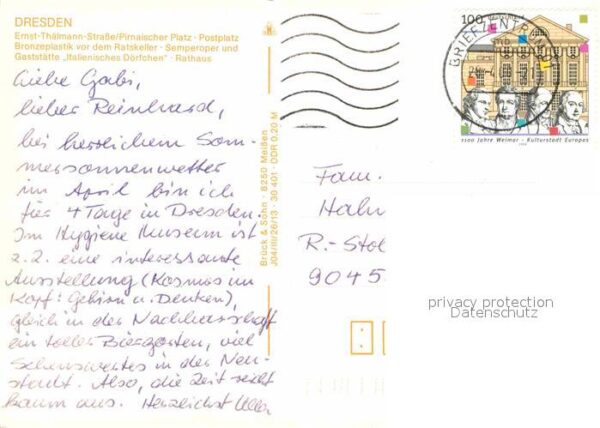 DRESDEN
Ernst-Thälmann-Straße/Pirnaischer Platz · Postplatz
Bronzeplastik vor dem Ratskeller · Semperoper und
Gaststätte „Italienisches Dörfchen“ · Rathaus
Liebe Gabi,
lieber Reinhard,
bei herrlichem Som-
mersonnenwetter
im April bin ich
für 4 Tage in Dresden.
Im Hygiene Museum ist
z. Z. eine interessante
Ausstellung (Kosmos im
Kopf: Gehirn u. Denken),
gleich in der Nachbarschaft
ein toller Biergarten, viel
Sehenswertes in der Neu-
stadt. Also, die Zeit reicht
kaum aus. Herzlichst Ulla
Brück & Sohn · 8250 Meißen
J04/III/26/13 · 30 401 · DDR 0,20 M
100
BRIEFZENTRUM
1100 Jahre Weimar - Kulturstadt Europas
Fam.
Hahn
R.-Stol
9045
privacy protection
Datenschutz